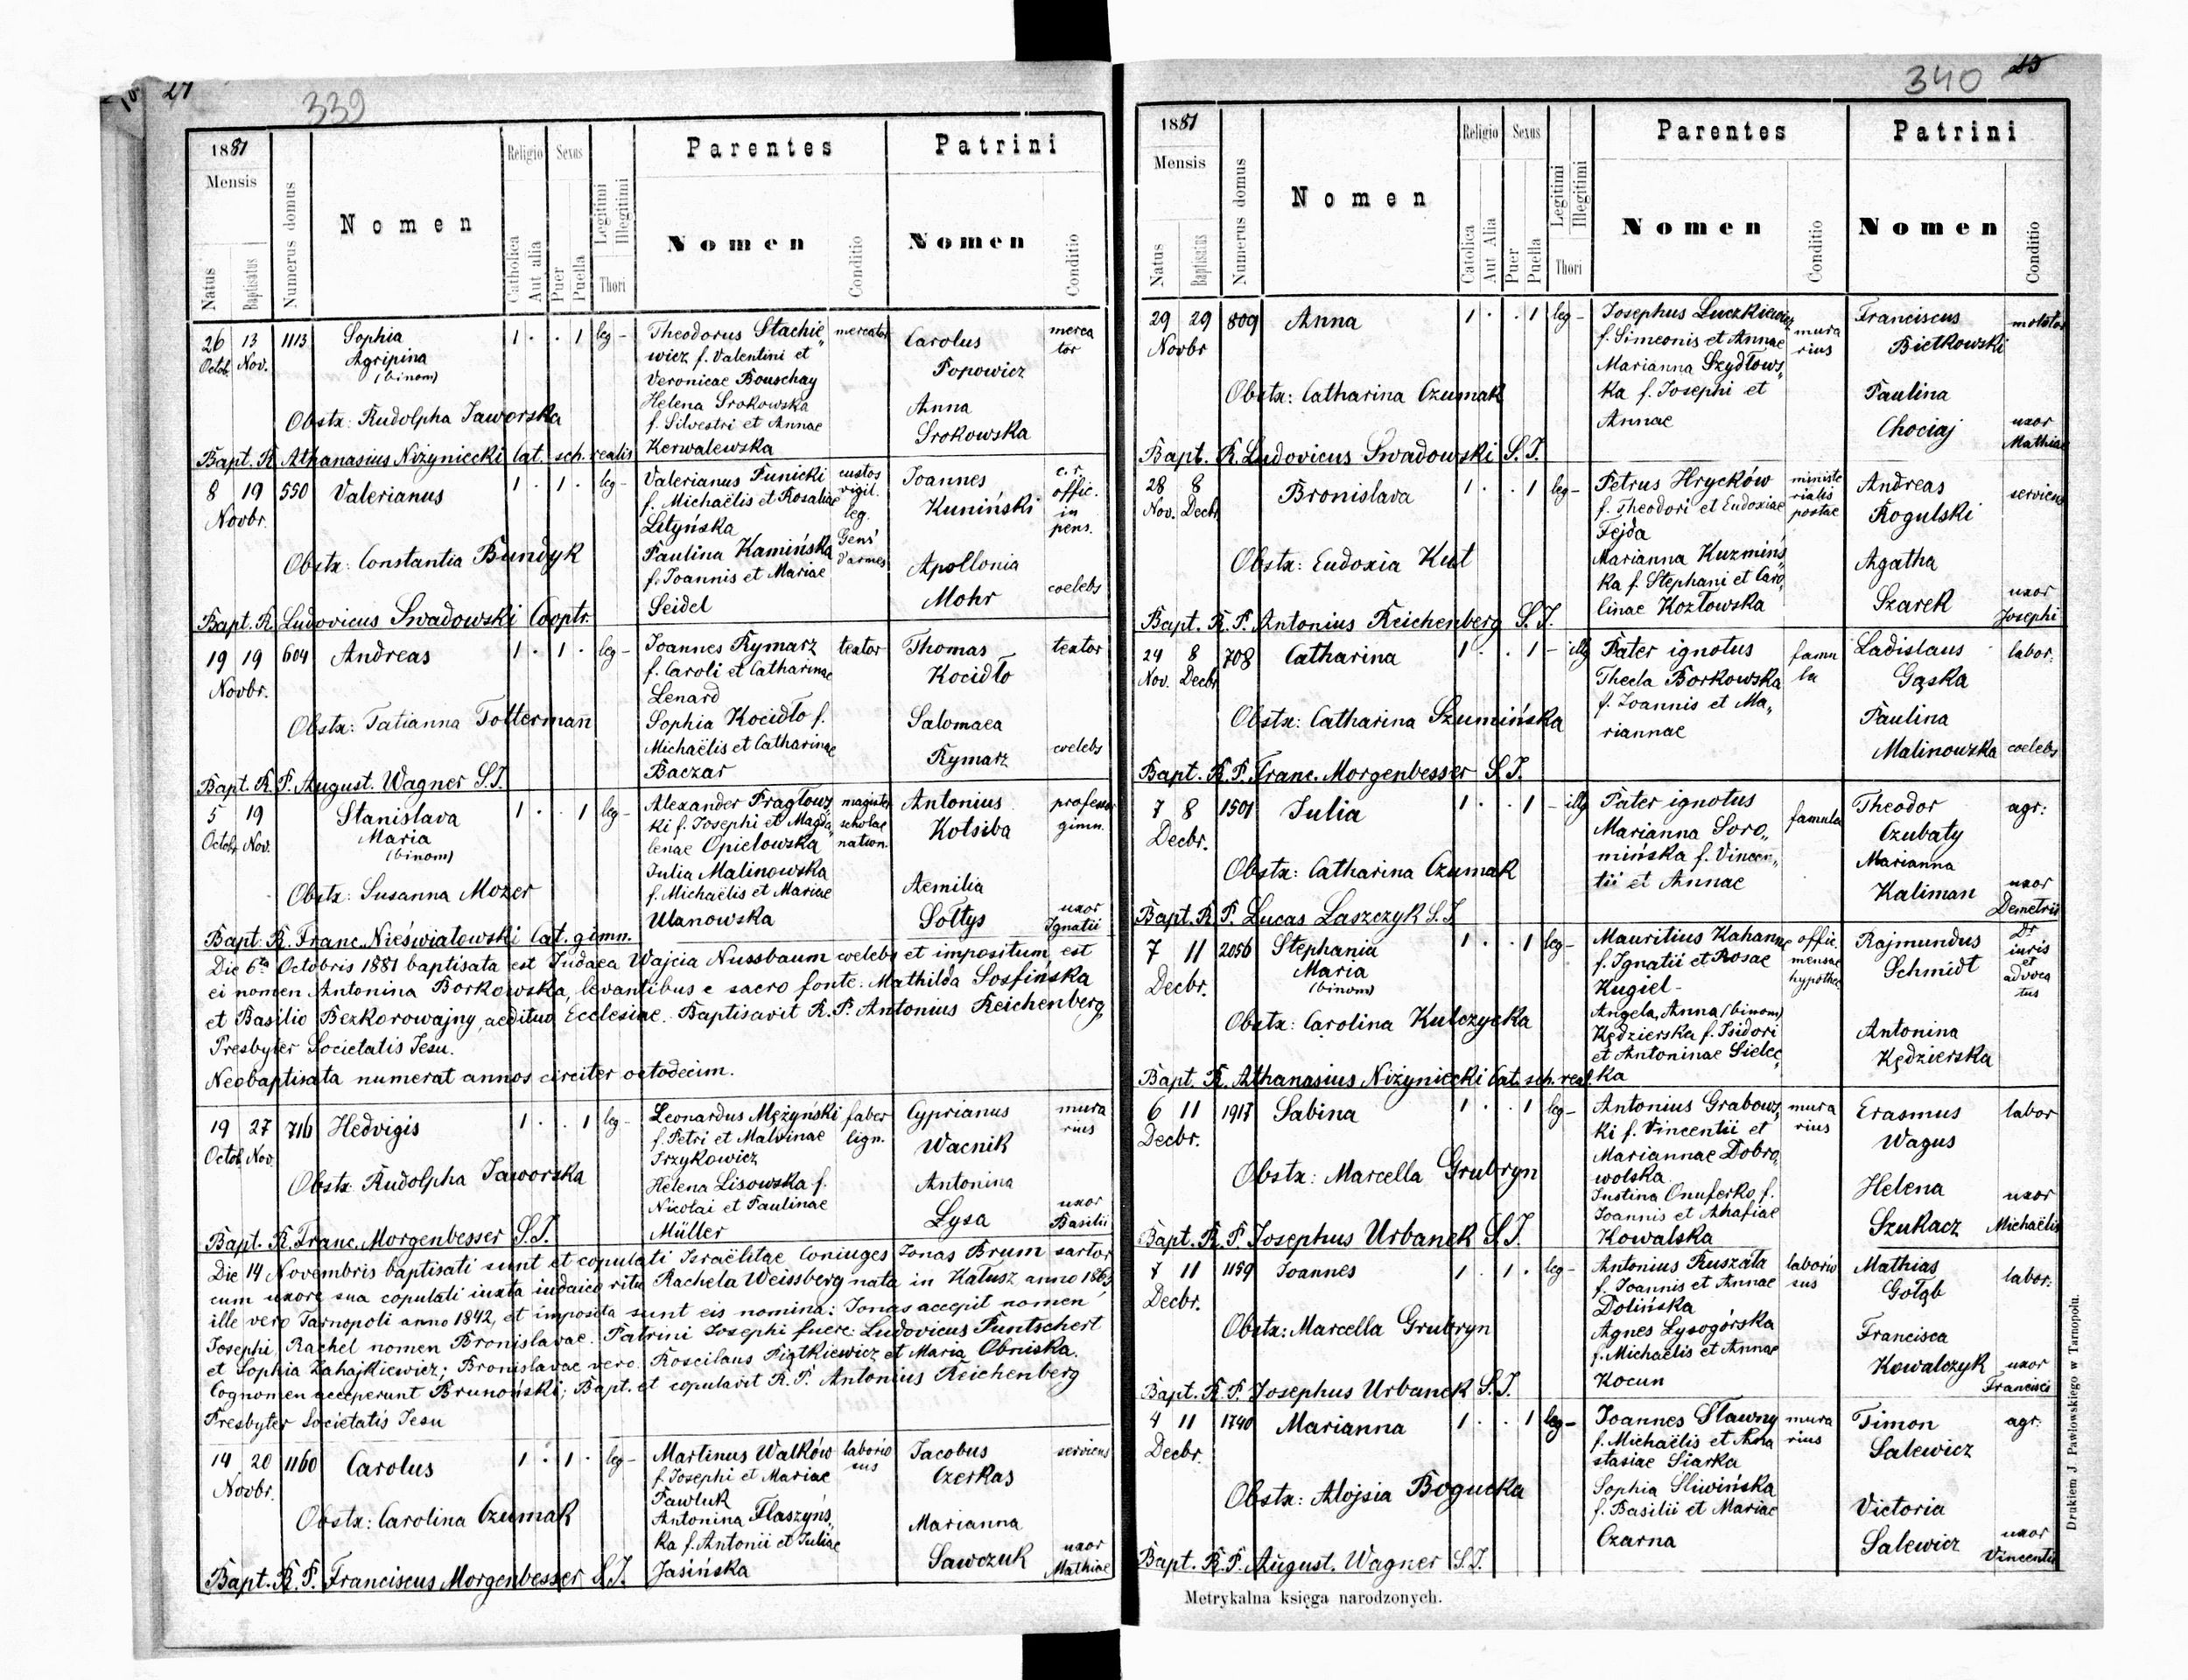 27
339
1881
Mensis
Natus
Baptisatus
Numerus domus
Nomen
Religio
Catholica
Aut alia
Sexus
Puer
Puella
Legitimi
Illegitimi
Thori
Parentes
Nomen
Conditio
Patrini
Nomen
Conditio
26 13 1113 Sophia 1 . . 1 leg - Theodorus Stachie„ mercator Carolus merca
Octob. Nov. Agripina wicz f. Valentini et Popowicz tor
(binom) Veronicae Bouschay
Helena Srokowska Anna
Obstx: Rudolpha Jaworska f. Silvestri et Annae Srokowska
Bapt. R. Athanasius Niżyniecki Cat. sch. realis Kerwalewska
8 19 550 Valerianus 1 . 1 . leg - Valerianus Punicki custos Joannes c. r.
Novbr. f. Michaëlis et Rosaliae vigil. Kuniński offic.
Lityńska leg. in
Paulina Kamińska Gens' pens.
Obstx: Constantia Bundyk f. Joannis et Mariae d'armes Apollonia
Bapt. R. Ludovicus Swadowski Cooptr. Seidel Mohr coelebs
19 19 604 Andreas 1 . 1 . leg - Joannes Rymarz textor Thomas textor
Novbr. f. Caroli et Catharinae Kocidło
Lenard
Obstx: Tatianna Totterman Sophia Kocidło f. Salomaea
Michaëlis et Catharinae Rymarz coelebs
Bapt. R. P. August. Wagner S.J. Baczar
5 19 Stanislava 1 . . 1 leg - Alexander Fragłows„ magister Antonius professor
Octobr. Nov. Maria ki f. Josephi et Magda„ scholae Kotsiba gimn.
(binom) lenae Opielowska nation.
Julia Malinowska
Obstx: Susanna Mozer f. Michaëlis et Mariae Aemilia uxor
Bapt. R. Franc. Nieświatowski Cat. gimn. Ulanowska Sołtys Ignatii
Die 6ta Octobris 1881 baptisata est Judaea Wajcia Nussbaum coelebs et impositum est
ei nomen Antonina Borkowska, levantibus e sacro fonte: Mathilda Sosfińska
et Basilio Bezkorowajny, aedituo Ecclesiae. Baptisavit R. P. Antonius Reichenberg
Presbyter Societatis Jesu.
Neobaptisata numerat annos circiter octodecim.
19 27 716 Hedvigis 1 . . 1 leg - Leonardus Mężyński faber Cyprianus mura
Octob. Nov. f. Petri et Malvinae lign. Wacnik rius
Irzykowicz
Obstx: Rudolpha Jaworska Helena Lisowska f. Antonina
Nicolai et Paulinae Lysa uxor
Bapt. R. Franc. Morgenbesser S.J. Müller Basilii
Die 14 Novembris baptisati sunt et copulati Israëlitae Coniuges Jonas Brum sartor
cum uxore sua copulati iuxta iudaico ritu Rachela Weissberg nata in Kałusz anno 1863
ille vero Tarnopoli anno 1842, et imposita sunt eis nomina: Jonas accepit nomen
Josephi, Rachel nomen Bronislavae. Patrini Josephi fuere: Ludovicus Puntschert
et Sophia Zahajkiewicz; Bronislavae vero. Roscilaus Piątkiewicz et Maria Obniska.
Cognomen acceperunt Brunoński; Bapt. et copulavit R. P. Antonius Reichenberg
Presbyter Societatis Jesu
14 20 1160 Carolus 1 . 1 . leg - Martinus Walków laborio Jacobus serviens
Novbr. f. Josephi et Mariae sus Czerkas
Pawluk
Obstx: Carolina Czumak Antonina Flaszyńs„ Marianna
ka f. Antonii et Juliae Sawczuk uxor
Bapt. R. P. Franciscus Morgenbesser S.J. Jasińska Mathiae
340
1881
Mensis
Natus
Baptisatus
Numerus domus
Nomen
Religio
Catolica
Aut Alia
Sexus
Puer
Puella
Legitimi
Illegitimi
Thori
Parentes
Nomen
Conditio
Patrini
Nomen
Conditio
29 29 809 Anna 1 . . 1 leg - Josephus Luczkiewicz mura Franciscus molitor
Novbr f. Simeonis et Annae rius Bietkowski
Marianna Szydłows„
Obstx: Catharina Czumak ka f. Josephi et Paulina
Annae Chociaj uxor
Bapt. R. Ludovicus Swadowski S.J. Mathiae
28 8 Bronislava 1 . . 1 leg - Petrus Hryćków ministe Andreas serviens
Nov. Decbr f. Theodori et Eudoxiae rialis Rogulski
Fejda postae
Obstx: Eudoxia Kut Marianna Kuzmińs„ Agatha
ka f. Stephani et Caro„ Szarek uxor
Bapt. R. P. Antonius Reichenberg S.J. linae Kozłowska Josephi
24 8 708 Catharina 1 . . 1 - illg Pater ignotus famu Ladislaus labor:
Nov. Decbr Thecla Borkowska la Gąska
f. Joannis et Ma„
Obstx: Catharina Szumińska riannae Paulina
Malinowska coelebs
Bapt. R. P. Franc. Morgenbesser S.J.
7 8 1501 Julia 1 . . 1 - illg Pater ignotus famula Theodor agr:
Decbr. Marianna Soro„ Czubaty
mińska f. Vincen„ Marianna
Obstx: Catharina Czumak tii et Annae Kaliman uxor
Bapt. R. P. Lucas Laszczyk S.J. Demetrii
7 11 2056 Stephania 1 . . 1 leg - Mauritius Kahanne offic. Rajmundus Dr
Decbr. Maria f. Ignatii et Rosae mensae Schmidt iuris
(binom) Kugiel- hypothec. et advoca
Angela, Anna (binom) tus
Obstx: Carolina Kulczycka Kędzierska f. Isidori Antonina
et Antoninae Sielec„ Kędzierska
Bapt. R. Athanasius Niżyniecki Cat. sch. real. ka
6 11 1917 Sabina 1 . . 1 leg - Antonius Grabows„ mura Erasmus labor
Decbr. ki f. Vincentii et rius Wagus
Mariannae Dobro„
Obstx: Marcella Grubryn wolska Helena
Justina Onuferko f. Szukacz uxor
Joannis et Ahafiae Michaëlis
Bapt. R. P. Josephus Urbanek S.J. Kowalska
7 11 1159 Joannes 1 . 1 . leg - Antonius Ruszała laborio Mathias labor:
Decbr. f. Joannis et Annae sus Gołąb
Dolińska
Obstx: Marcella Grubryn Agnes Lysogórska Francisca
f. Michaëlis et Annae Kowalczyk uxor
Bapt. R. P. Josephus Urbanek S.J. Kocun Francisci
4 11 1740 Marianna 1 . . 1 leg - Joannes Sławny mura Timon agr:
Decbr. f. Michaëlis et Ana rius Salewicz
stasiae Siarka
Obstx: Alojsia Bogucka Sophia Śliwińska
f. Basilii et Mariae Victoria
Czarna Salewicz uxor
Bapt. R. P. August. Wagner S.J. Vincentii
Metrykalna księga narodzonych.
Drukiem J. Pawłowskiego w Tarnopolu.